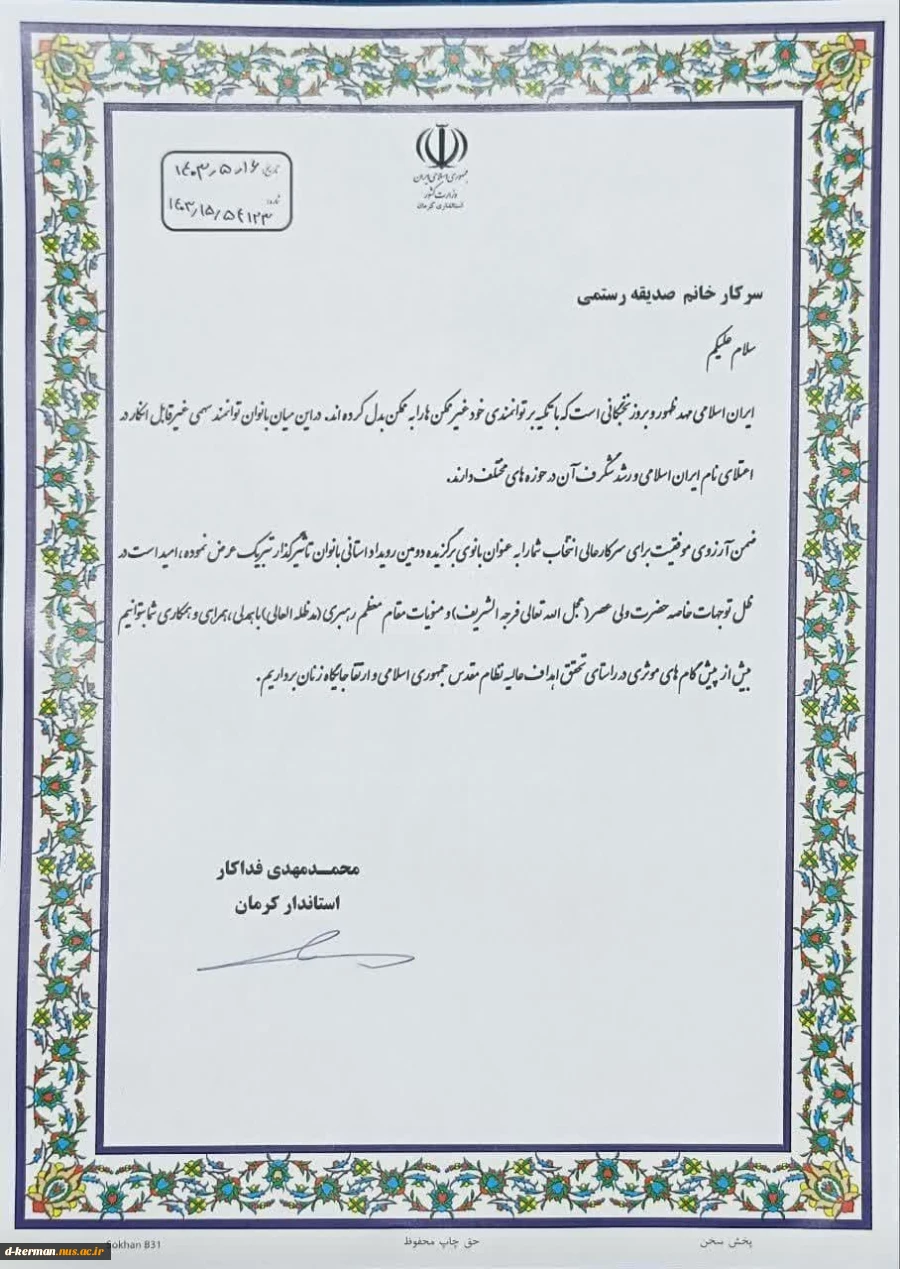 جمهوری اسلامی ایران
وزارت کشور
استانداری کرمان
تاریخ: ۱۴۰۳٫۵٫۱۶
شماره: ۱۴۰۳٫۱۵٫۵۴۱۲۳
سرکار خانم صدیقه رستمی
سلام علیکم
ایران اسلامی مهد ظهور و بروز نخبگانی است که با تکیه بر توانمندی خود غیر ممکن ها را به ممکن بدل کرده اند. در این میان بانوان توانمند سهمی غیر قابل انکار در
اعتلای نام ایران اسلامی و رشد شگرف آن در حوزه های مختلف دارند.
ضمن آرزوی موفقیت برای سرکارعالی انتخاب شما را به عنوان بانوی برگزیده دومین رویداد استانی بانوان تاثیرگذار تبریک عرض نموده، امید است در
ظل توجهات خاصه حضرت ولی عصر (عجل الله تعالی فرجه الشریف) و منویات مقام معظم رهبری (مدظله العالی) با همدلی، همراهی و همکاری شما بتوانیم
بیش از پیش گام های موثری در راستای تحقق اهداف عالیه نظام مقدس جمهوری اسلامی و ارتقا جایگاه زنان برداریم.
محمــدمهدی فداکار
استاندار کرمان
پخش سخن
حق چاپ محفوظ
Sokhan B31
d-kerman.nus.ac.ir